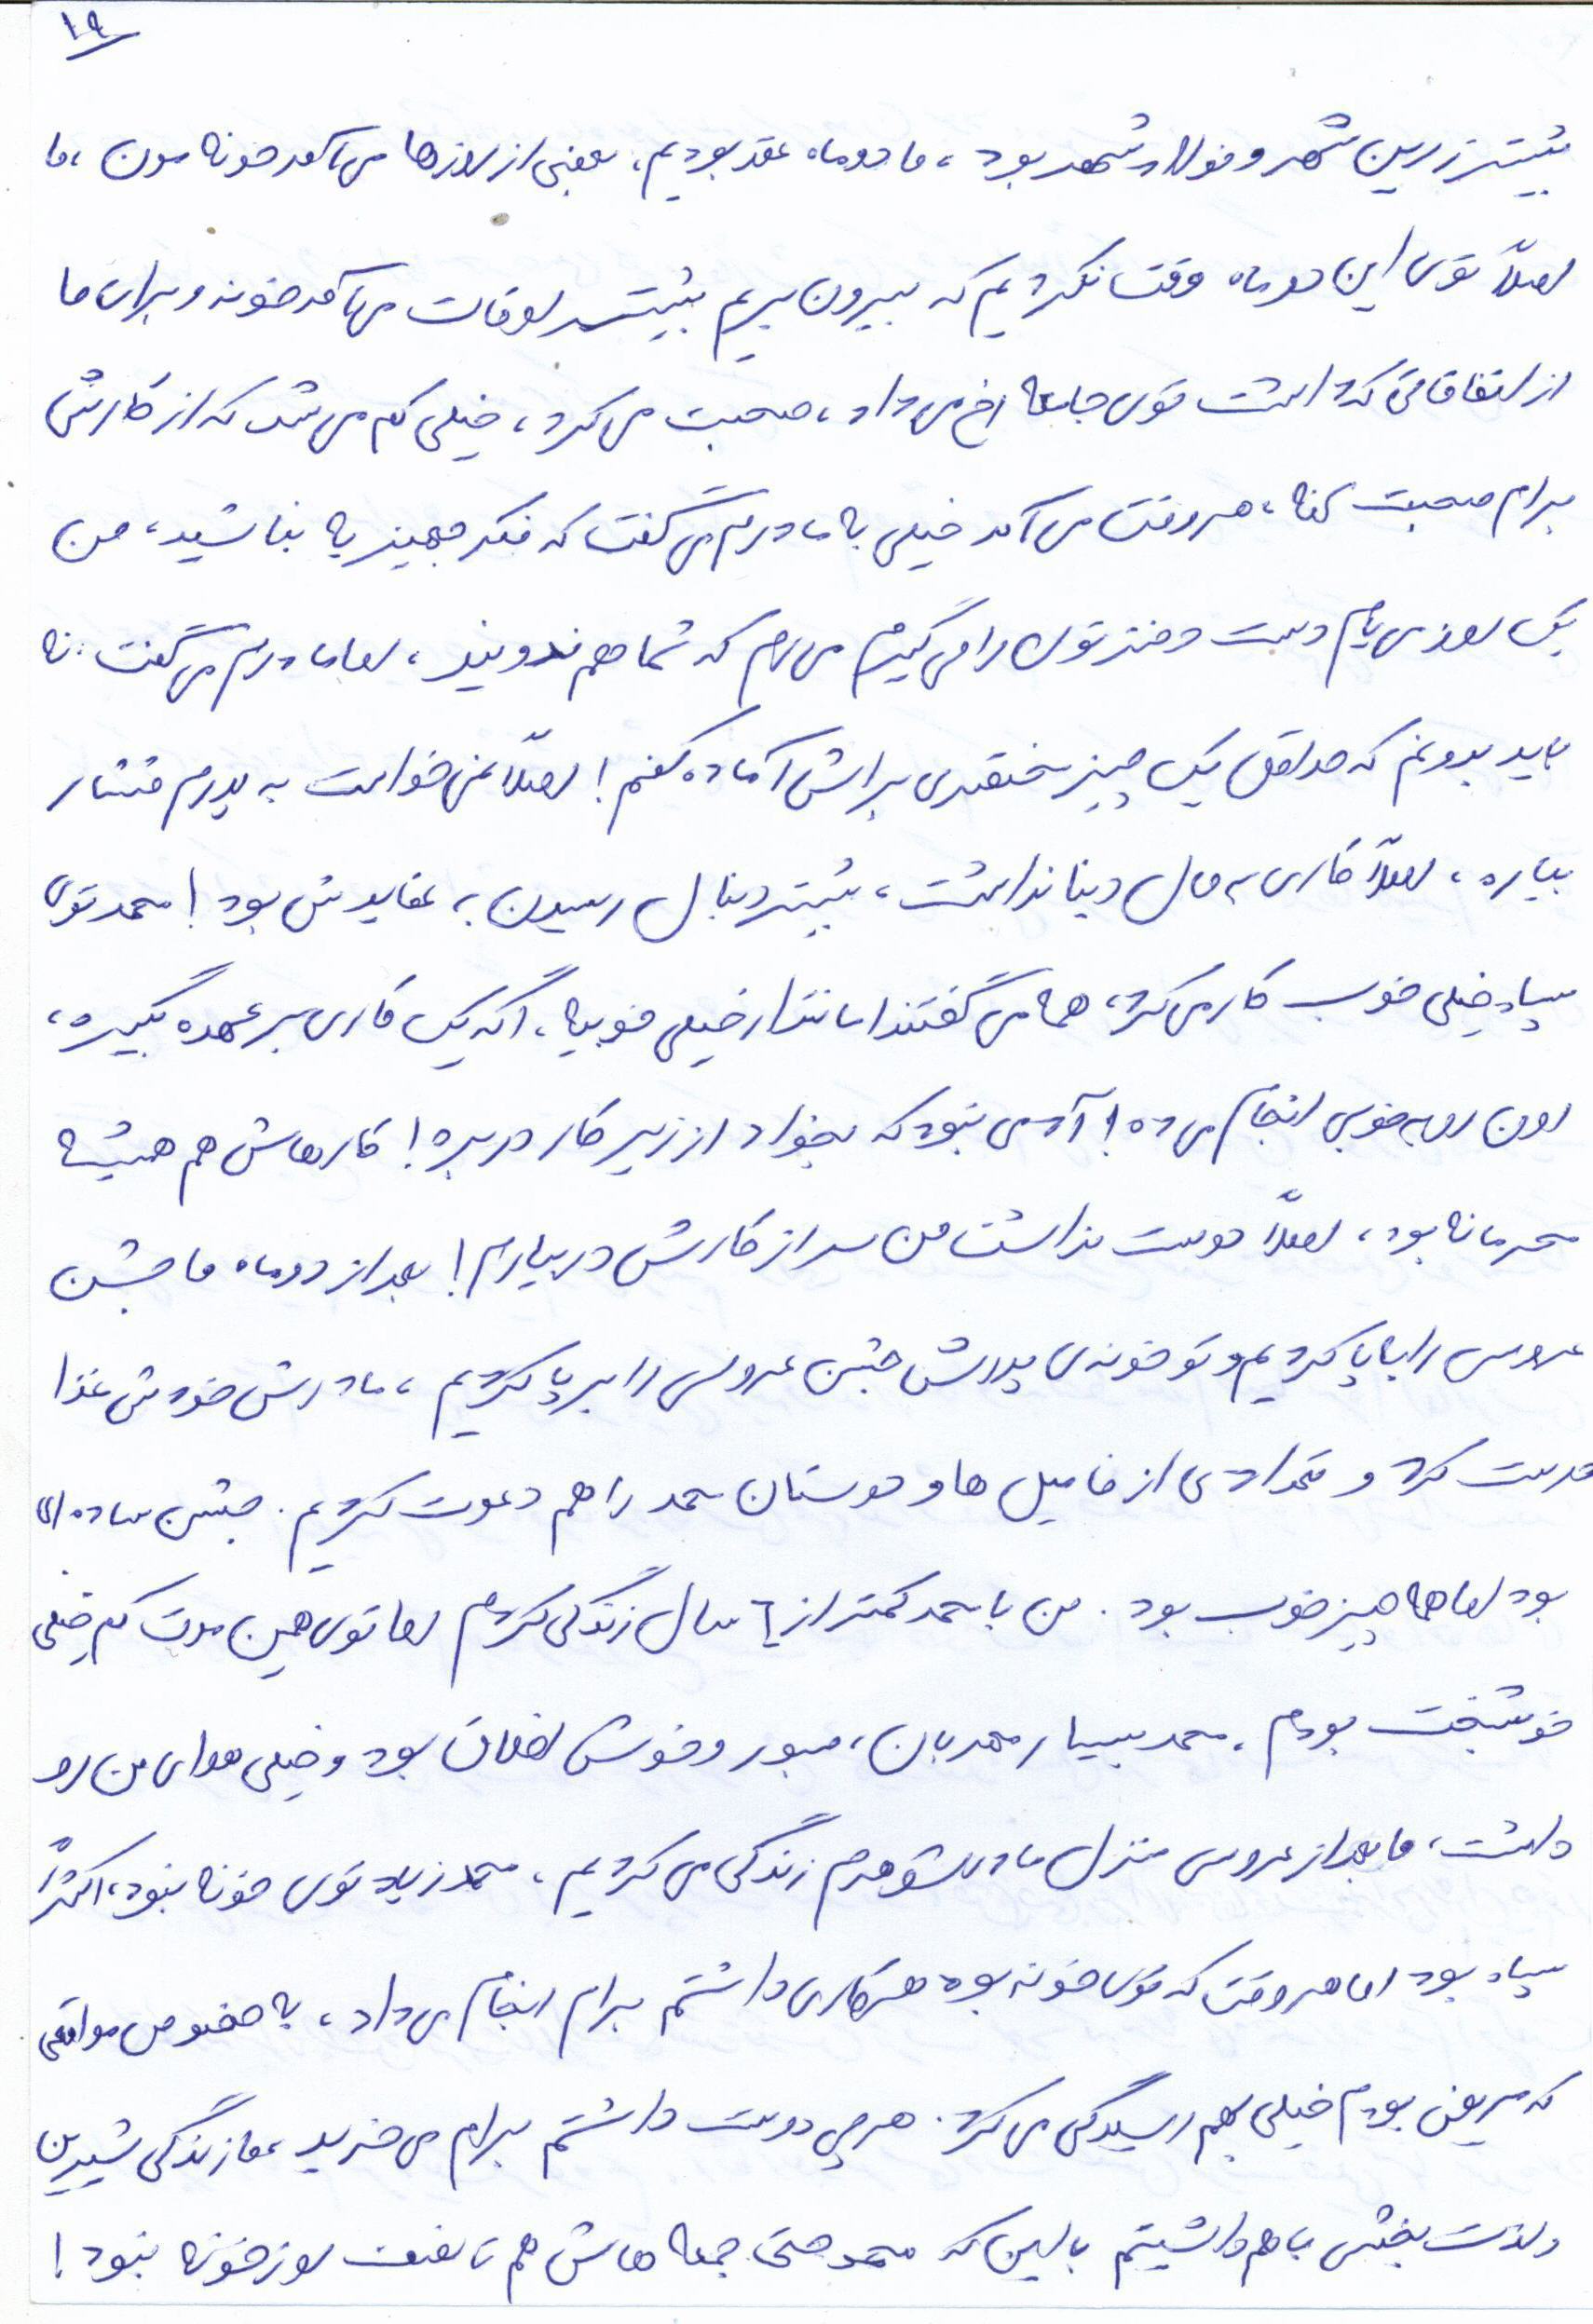 ۱۹
بیشتر زرین شهر و فولاد شهر بود، ما دو ماه عقد بودیم، بعضی از روزها می آمد خونه مون، ما
اصلاً توی این دو ماه وقت نکردیم که بیرون بریم بیشتر اوقات می آمد خونه و برای ما
از اتفاقاتی که داشت توی جامعه رخ می داد، صحبت می کرد، خیلی کم می شد که از کارش
برام صحبت کنه، هر وقت می آمد خیلی به مادرم می گفت که فکر جهیزیه نباشید، من
یک روز می یام دست دخترتون را می گیرم می برم که شما هم ندونید، اما مادرم می گفت: نه
باید بدونم که حداقل یک چیز مختصری براش آماده کنم! اصلاً نمی خواست به پدرم فشار
بیاره، اصلاً کاری به مال دنیا نداشت، بیشتر دنبال رسیدن به عقایدش بود! محمد توی
سپاه خیلی خوب کار می کرد، همه می گفتند امانتدار خیلی خوبیه، اگه یک کاری بر عهده بگیره،
اون رو به خوبی انجام می ده! آدمی نبود که بخواد از زیر کار در بره! کارهاش هم همیشه
محرمانه بود، اصلاً دوست نداشت من سر از کارش در بیارم! بعد از دو ماه ما جشن
عروسی را بپا کردیم و تو خونه ی پدرش جشن عروسی را برپا کردیم، مادرش خودش غذا
درست کرد و تعدادی از فامیل ها و دوستان محمد را هم دعوت کردیم. جشن ساده ای
بود اما همه چیز خوب بود. من با محمد کمتر از ۶ سال زندگی کردم اما توی همین مدت کم خیلی
خوشبخت بودم. محمد بسیار مهربان، صبور و خوش اخلاق بود و خیلی هوای من رو
داشت، ما بعد از عروسی منزل مادرشوهرم زندگی می کردیم، محمد زیاد توی خونه نبود، اکثراً
سپاه بود اما هر وقت که توی خونه بود هر کاری داشتم برام انجام می داد، به خصوص مواقعی
که مریض بودم خیلی بهم رسیدگی می کرد. هر چی دوست داشتم برام می خرید، ما زندگی شیرین
و لذت بخشی با هم داشتیم با این که محمد حتی جمعه هاش هم تا نصف روز خونه نبود!